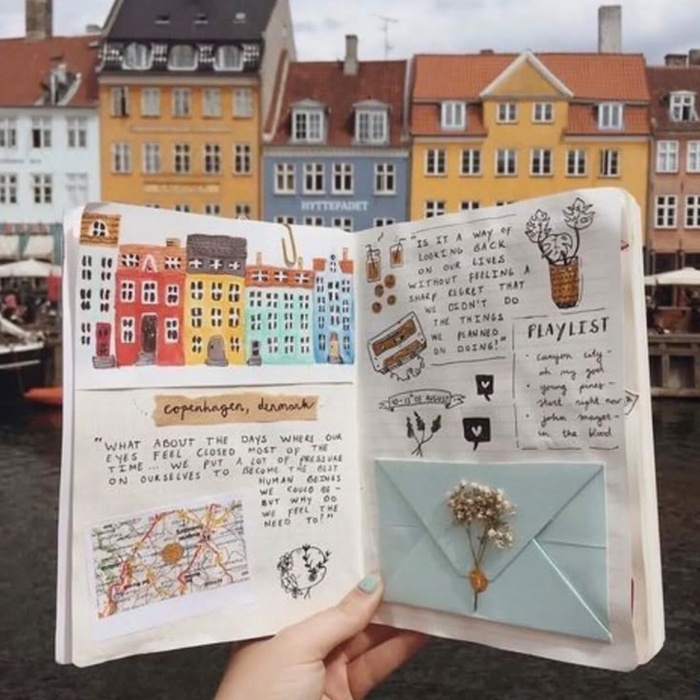 HYTTEFADET
copenhagen, denmark
"WHAT ABOUT THE DAYS WHERE OUR
EYES FEEL CLOSED MOST OF THE
TIME... WE PUT A LOT OF PRESSURE
ON OURSELVES TO BECOME THE BEST
HUMAN BEINGS
WE COULD BE -
BUT WHY DO
WE FEEL THE
NEED TO?"
"IS IT A WAY OF
LOOKING BACK
ON OUR LIVES
WITHOUT FEELING A
SHARP REGRET THAT
WE DIDN'T DO
THE THINGS
WE PLANNED
ON DOING!"
10-13TH OF AUGUST
PLAYLIST
• canyon city -
oh my god
• young pines -
start right now
• john mayer -
in the blood